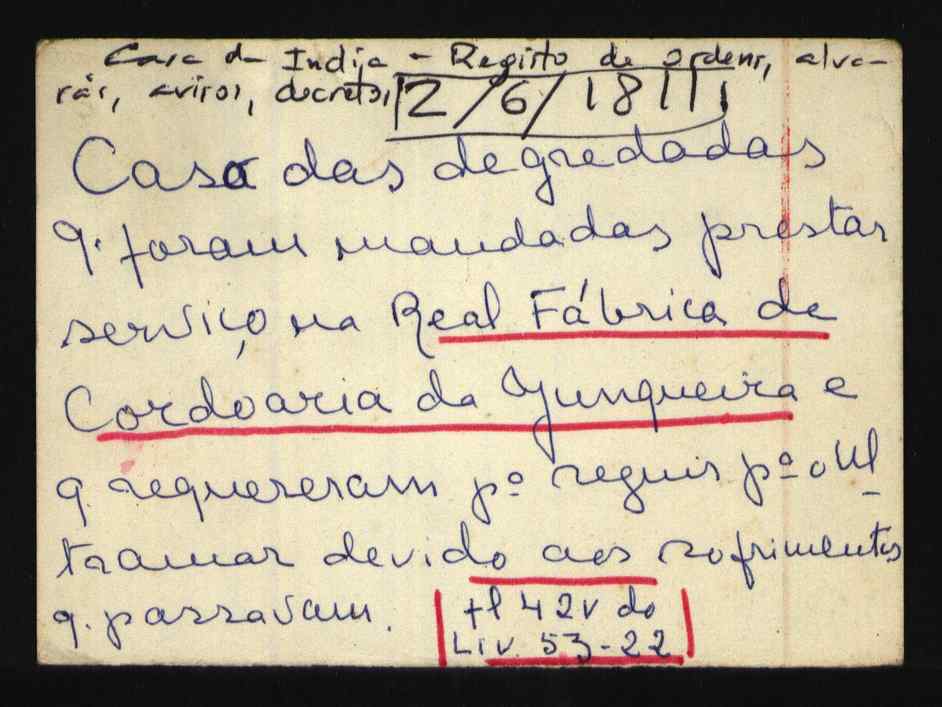 Casa da India - Registo de ordens, alva-
rás, avisos, decretos, 2/6/1811
Casa das degredadas
q. foram mandadas prestar
serviço na Real Fábrica de
Cordoaria da Junqueira e
q. requereram pª seguir pª o Ul_
tramar devido aos sofrimentos
q. passavam.
fl 42v do
Liv. 53-22